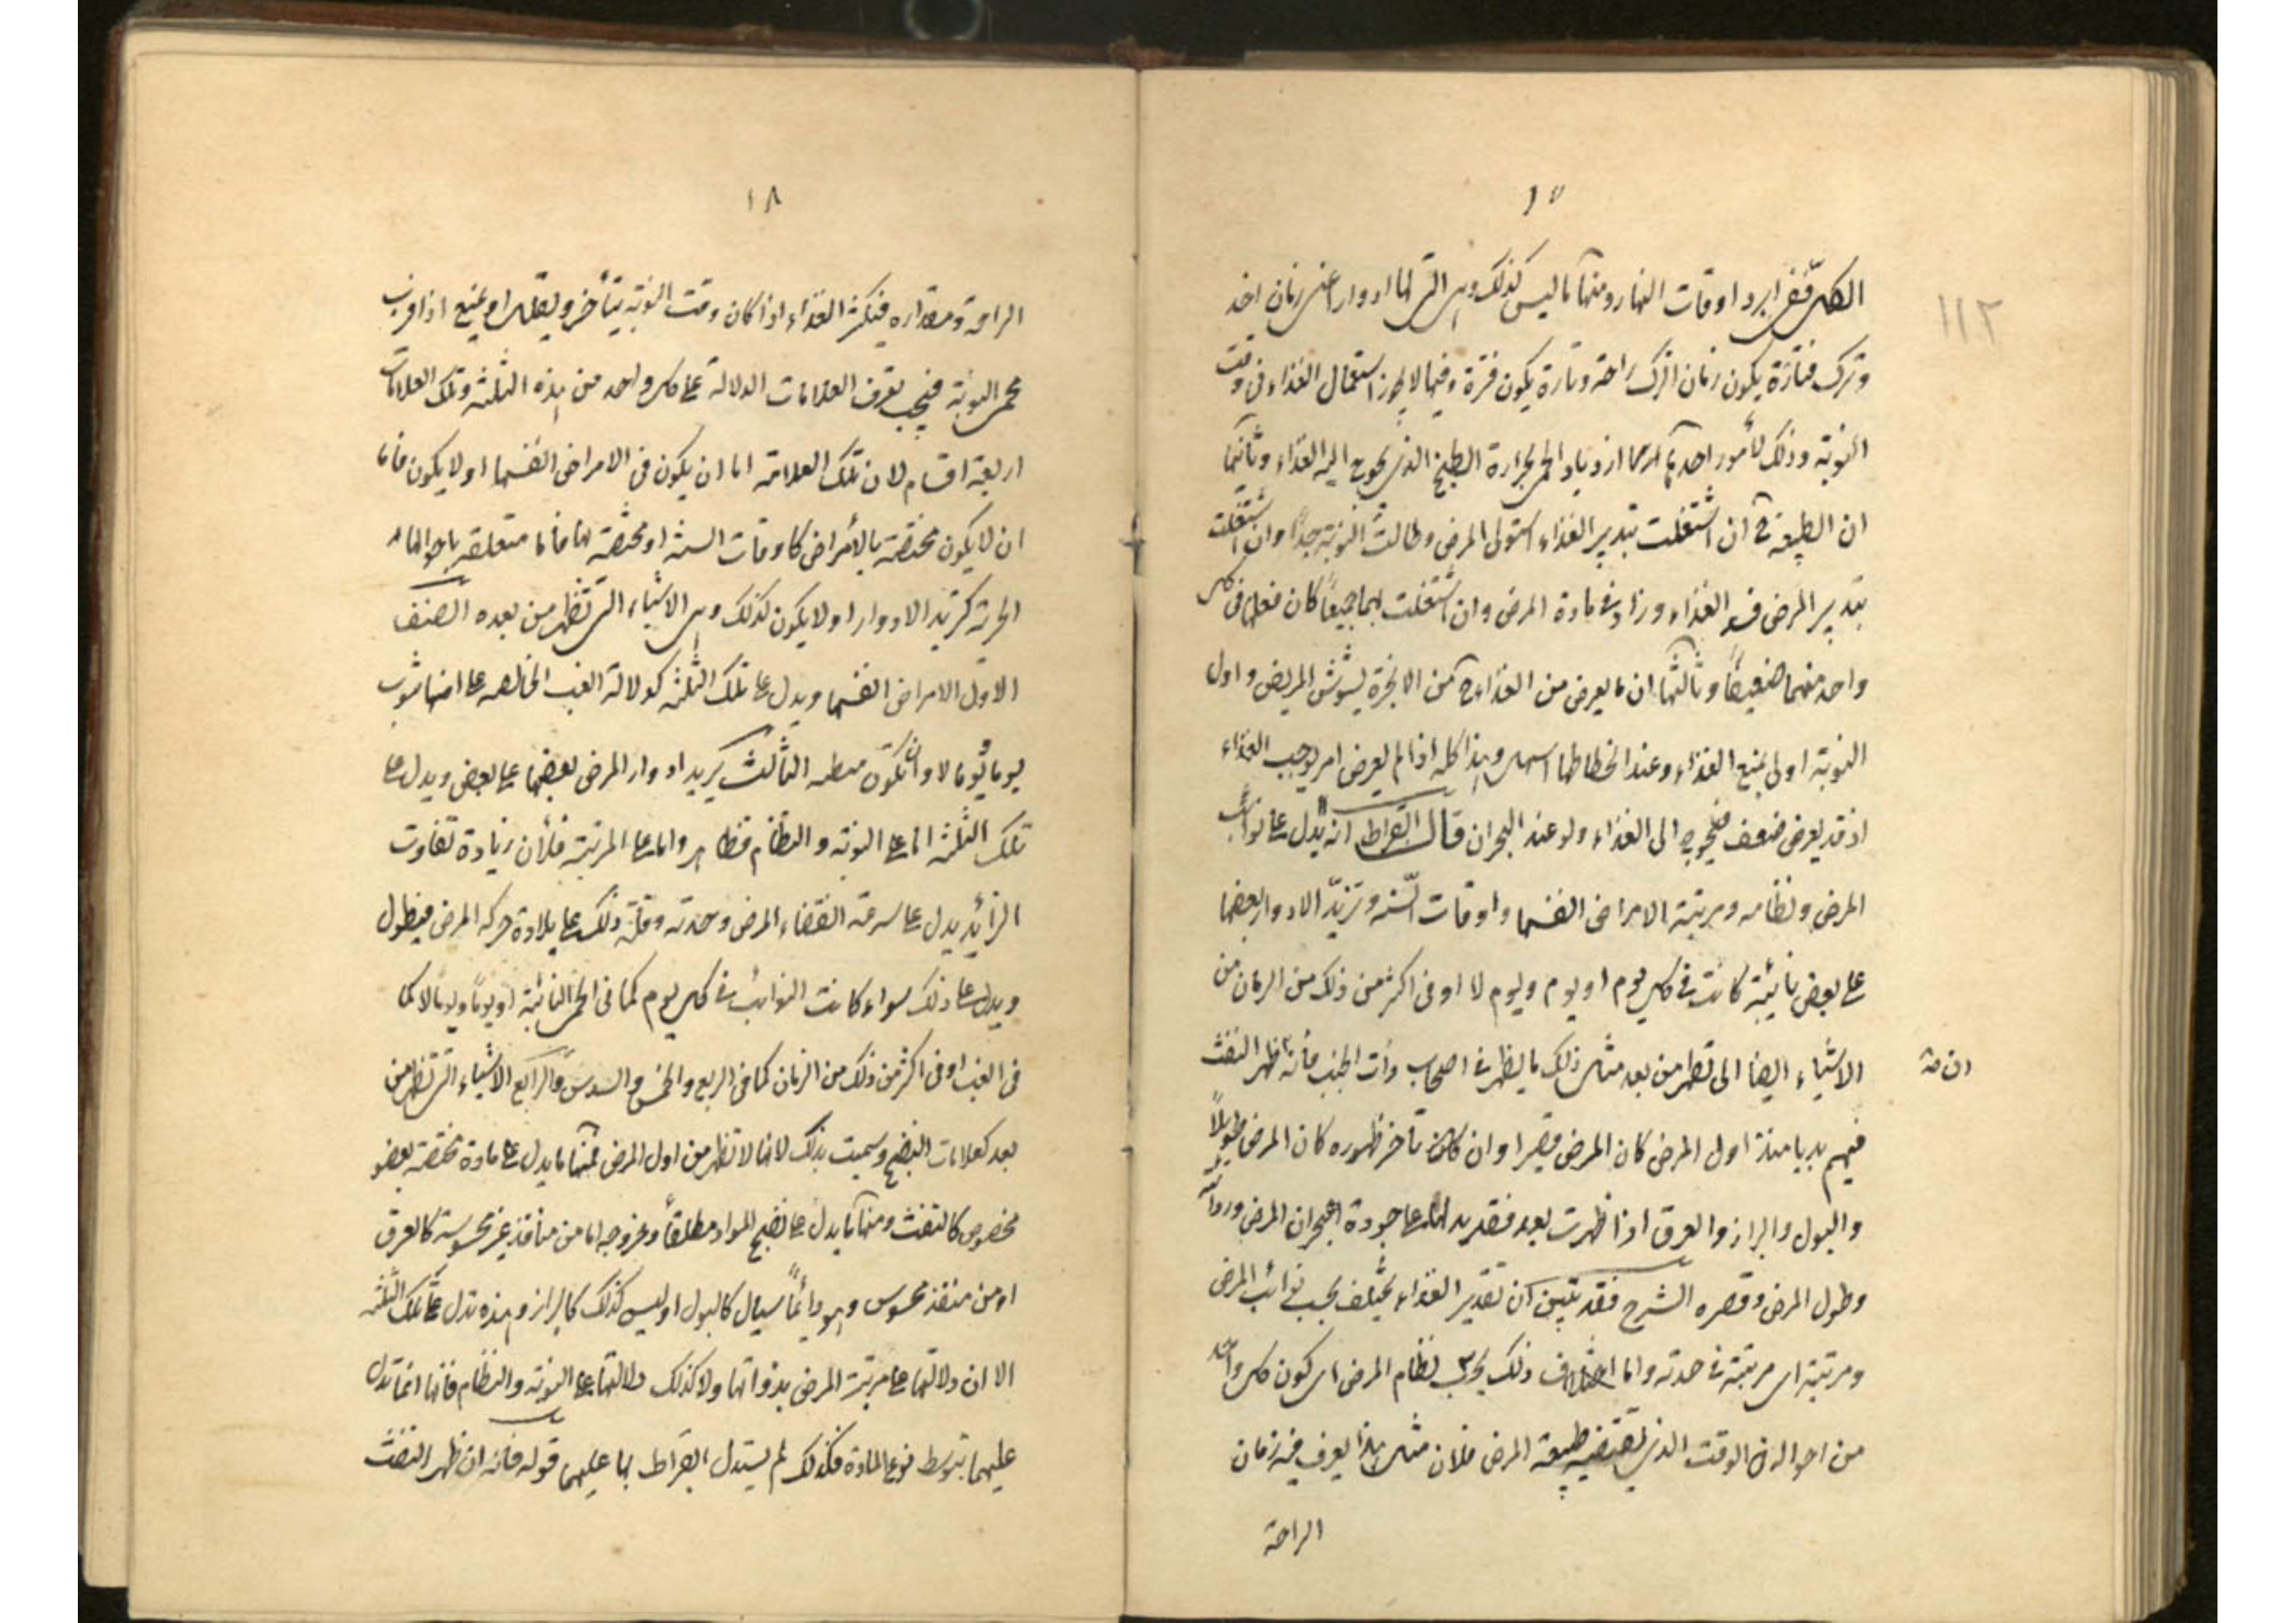 ١٧
١١٢
الكلى ففى ابرد اوقات النهار ومنها ما ليس كذلك وهى التى لها ادوار اعنى زمان اخذ
وترك فتارة يكون زمان الترك راحة وتارة يكون فترة وفيها لا يجوز استعمال الغذاء فى وقت
النوبة وذلك لأمور احدها ازدياد الحمى بحرارة الطبخ الذى يحوج اليه الغذاء وثانيها
ان الطبيعة ح ان اشتغلت بتدبير الغذاء استولى المرض وطالت النوبة جدا وان اشتغلت
بتدبير المرض فسد الغذاء وزاد فى مادة المرض وان اشتغلت بهما جميعاً كان فعلها فى كل
واحد منهما ضعيفاً وثالثها ان ما يعرض من الغذاء ح من الابخرة يشوش المريض واول
النوبة اولى بمنع الغذاء وعند انحطاطها اسهل وهذا كله اذا لم يعرض امر يوجب الغذاء
اذ قد يعرض ضعف فيحوج الى الغذاء ولو عند البحران قال ابقراط انه يدل على نوائب
المرض ونظامه ومرتبة الامراض انفسها واوقات السنة وتزيّد الادوار بعضها
على بعض نائبة كانت فى كل يوم او يوم ويوم لا او فى اكثر من ذلك من الزمان من
الاشياء ايضا التى تظهر من بعد مثال ذلك ما يظهر فى اصحاب ذات الجنب فأنه ظهر النفث
ان مة
فيهم بديا منذ اول المرض كان المرض قصيرا وان كان تأخر ظهوره كان المرض طويلاً
والبول والبراز والعرق اذا ظهرت بعد فقد يدلنا على جودة بحران المرض وردائته
وطول المرض وقصره الشرح فقد تبين ان تقدير الغذاء يختلف بحسب نوائب المرض
ومرتبته اى مرتبته فى حدته واما اختلاف ذلك بحسب نظام المرض اى كون كل واحد
من احواله فى الوقت الذى تقتضيه طبيعة المرض فلان مثل هذا يعرف فيه زمان
الراحة
١٨
الراحة ومقداره فيكثر الغذاء اذا كان وقت النوبة يتأخر ويقلل او يمنع اذا قرب
مجى النوبة فيجب تعرف العلامات الدلالة على كل واحد من هذه الثلثة وتلك العلامات
اربعة اقسام لان تلك العلامة اما ان يكون فى الامراض انفسها او لا يكون فاما
ان لا يكون مختصة بالأمراض كاوقات السنة او مختصة بها فاما متعلقة باحوالها
الجزئية كتزيد الادوار او لا يكون كذلك وهى الاشياء التى تظهر من بعده الصنف
الاول الامراض انفسها ويدل على تلك الثلثة كدلالة الغب الخالصة على انها تنوب
يوما ويوما لا وان تكون منطمه الثالث تزيد ادوار المرض بعضها على بعض ويدل على
تلك الثلثة اما على النوبة والنظام فظاهر واما على المرتبة فلأن زيادة تفاوت
الزائد يدل على سرعة انقضاء المرض وحدته وقلة ذلك على بلادة حركة المرض فيطول
ويدل على ذلك سواء كانت النوائب فى كل يوم كما فى الحمى النائبة او يوما ويوما لا كما
فى الغب او فى اكثر من ذلك من الزمان كما فى الربع والخمس والسدس والرابع الاشياء التى تظهر من
بعد كعلامات النضج وسميت بذلك لانها لا تظهر من اول المرض فمنها ما يدل على مادة مختصة بعضو
مخصوص كالنفث ومنها ما يدل على نضج المواد مطلقاً وخروجه اما من منافذ غير محسوسة كالعرق
او من منفذ محسوس وهو دائماً سيال كالبول او ليس كذلك كالبراز وهذه تدل على تلك الثلثة
الا ان دلالتها على مرتبة المرض بذواتها ولا كذلك دلالتها على النوبة والنظام فانها انما تدل
عليهما بتوسط نوع المادة فكذلك لم يستدل ابقراط بها عليهما قوله فانه ان ظهر النفث